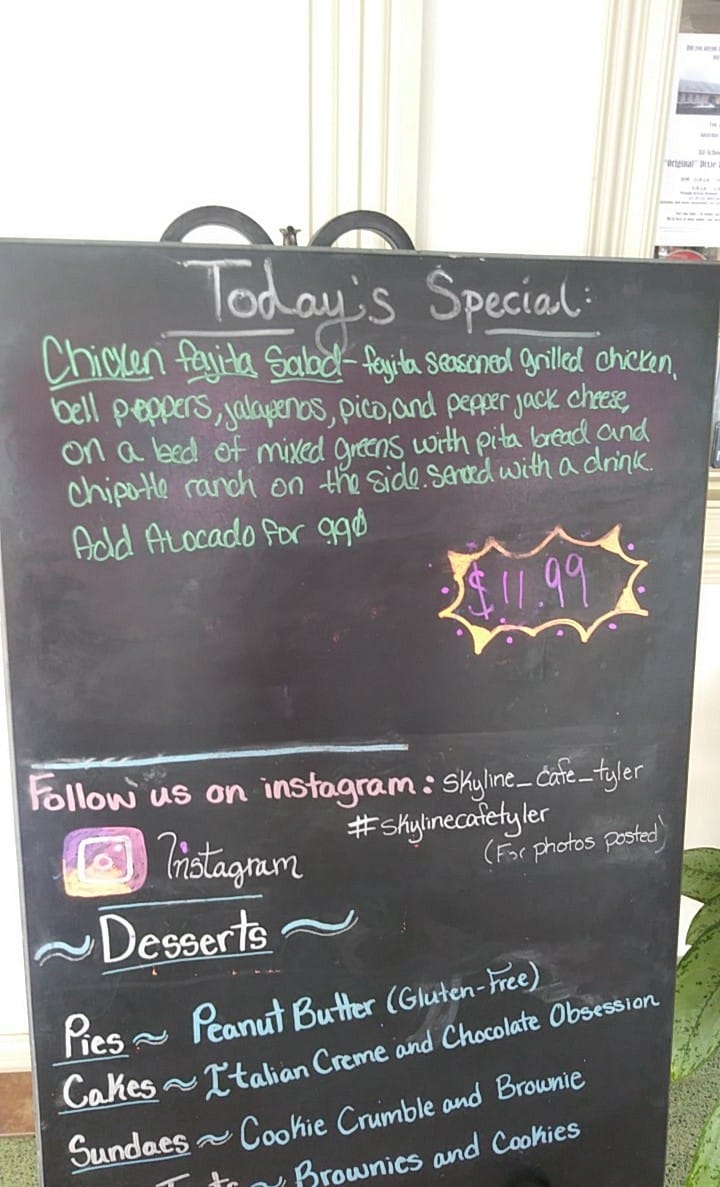 Today's Special:
Chicken fajita Salad- fajita seasoned grilled chicken,
bell peppers, jalapenos, pico, and pepper jack cheese,
on a bed of mixed greens with pita bread and
chipotle ranch on the side. Served with a drink.
Add Avocado for 99¢
$11.99
Follow us on instagram: skyline_cafe_tyler
#skylinecafetyler
(For photos posted)
Instagram
~Desserts~
Pies ~ Peanut Butter (Gluten-Free)
Cakes ~ Italian Creme and Chocolate Obsession
Sundaes ~ Cookie Crumble and Brownie
~ Brownies and Cookies
"Original" Dixie